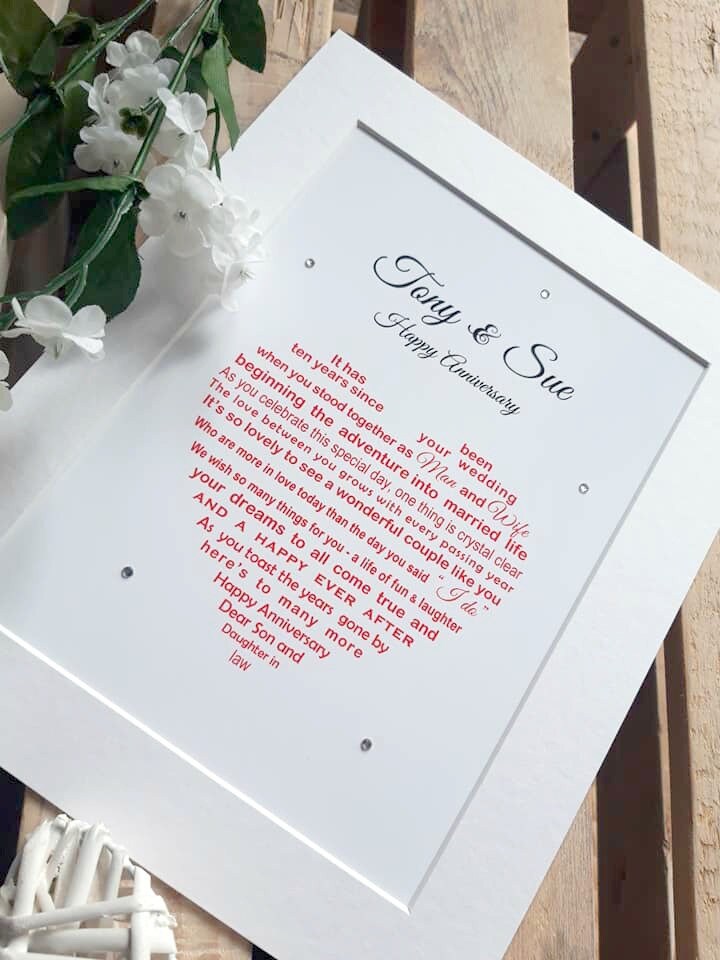 Tony & Sue
Happy Anniversary
It has been
ten years since your wedding
when you stood together as Man and Wife
beginning the adventure into married life
As you celebrate this special day, one thing is crystal clear
The love between you grows with every passing year
It's so lovely to see a wonderful couple like you
Who are more in love today than the day you said "I do"
We wish so many things for you - a life of fun & laughter
your dreams to all come true and
AND A HAPPY EVER AFTER
As you toast the years gone by
here's to many more
Happy Anniversary
Dear Son and
Daughter in
law